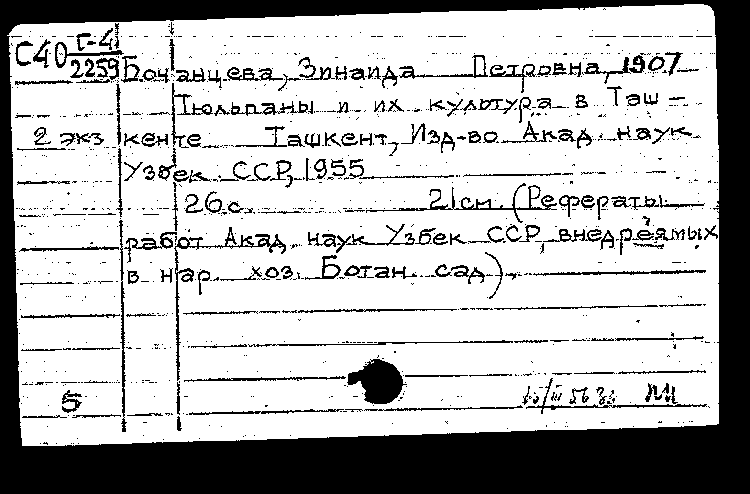 С40 Г-4/2259
Бочанцева, Зинаида Петровна, 1907
Тюльпаны и их культура в Таш-
2 экз кенте Ташкент, Изд-во Акад. наук
Узбек. ССР, 1955
26 с. 21 см. (Рефераты
работ Акад. наук Узбек ССР, внедреямых
в нар. хоз. Ботан. сад).
5